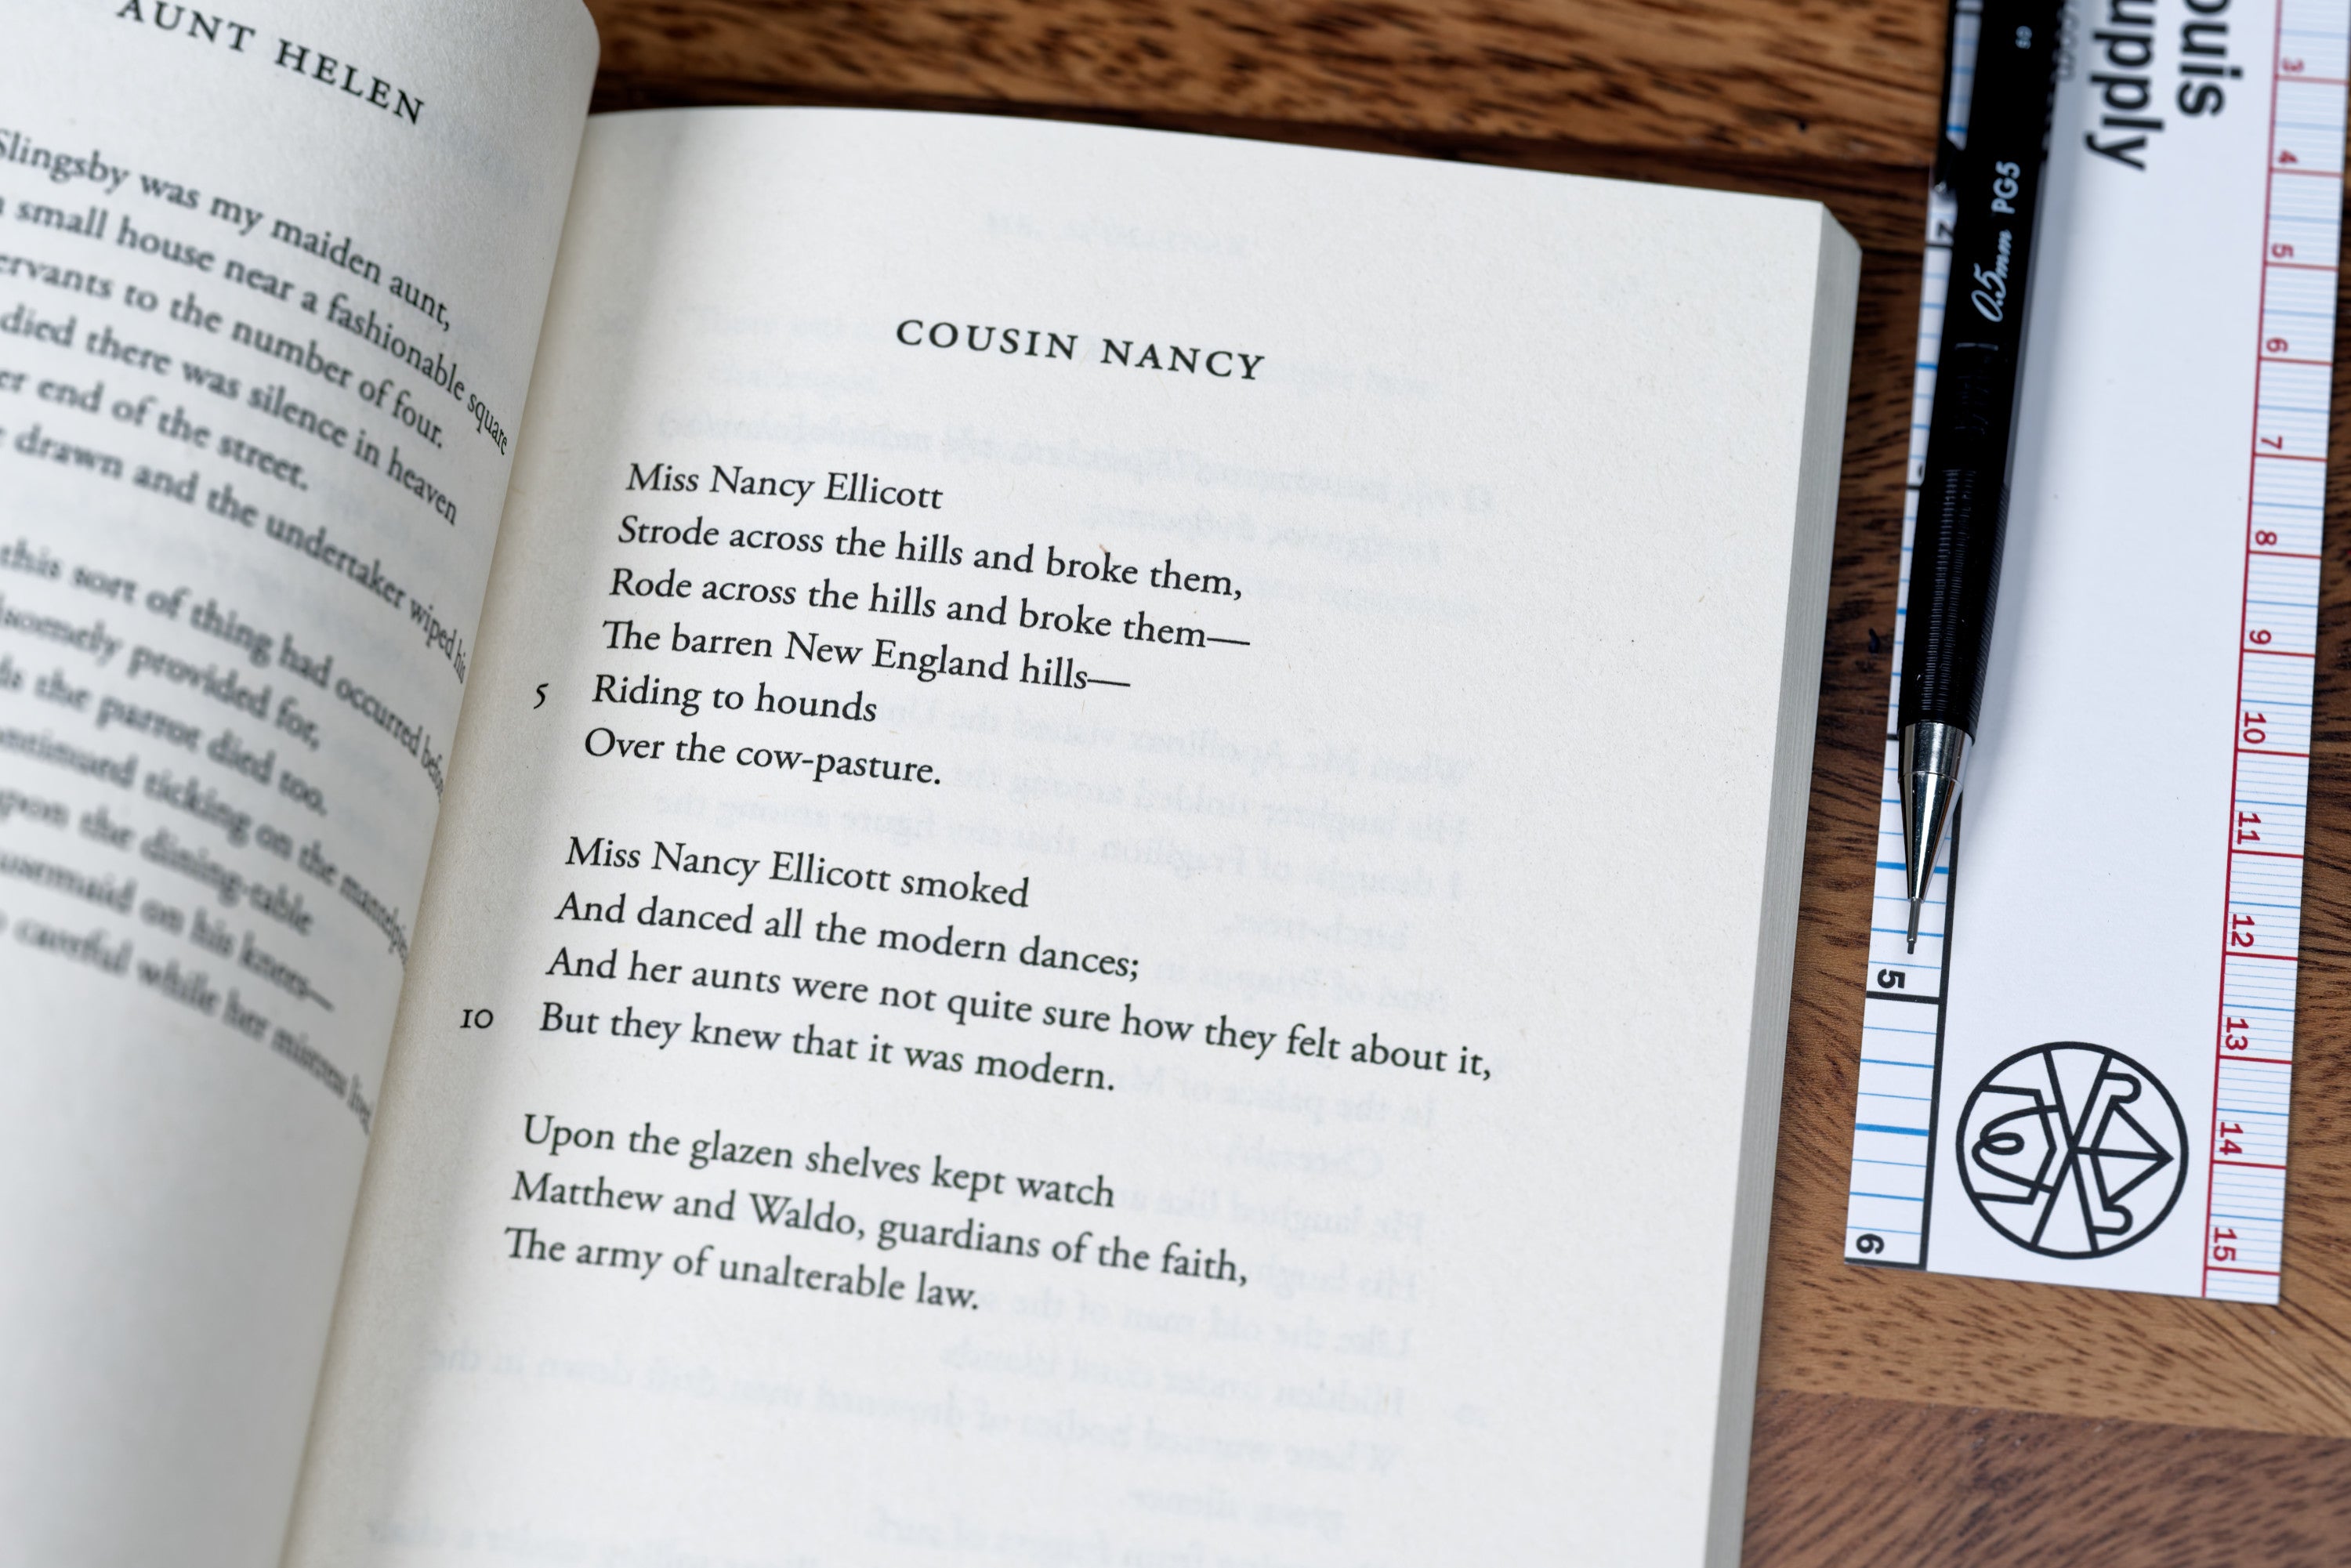 AUNT HELEN
Slingsby was my maiden aunt,
small house near a fashionable square
ervants to the number of four.
died there was silence in heaven
er end of the street.
drawn and the undertaker wiped his
this sort of thing had occurred before
provided for,
the parrot died too.
ticking on the mantelpiece
upon the dining-table
on his knees—
careful while her mistress lived
COUSIN NANCY
Miss Nancy Ellicott
Strode across the hills and broke them,
Rode across the hills and broke them—
The barren New England hills—
5 Riding to hounds
Over the cow-pasture.
Miss Nancy Ellicott smoked
And danced all the modern dances;
And her aunts were not quite sure how they felt about it,
10 But they knew that it was modern.
Upon the glazen shelves kept watch
Matthew and Waldo, guardians of the faith,
The army of unalterable law.
0.5mm PG5
ouis
upply
3
4
5
6
7
8
9
10
11
12
13
14
15
5
6